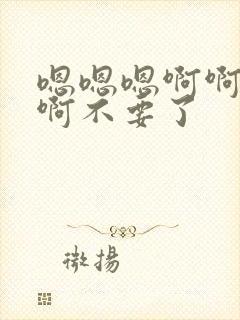 嗯嗯嗯啊啊
啊不要了
微揚